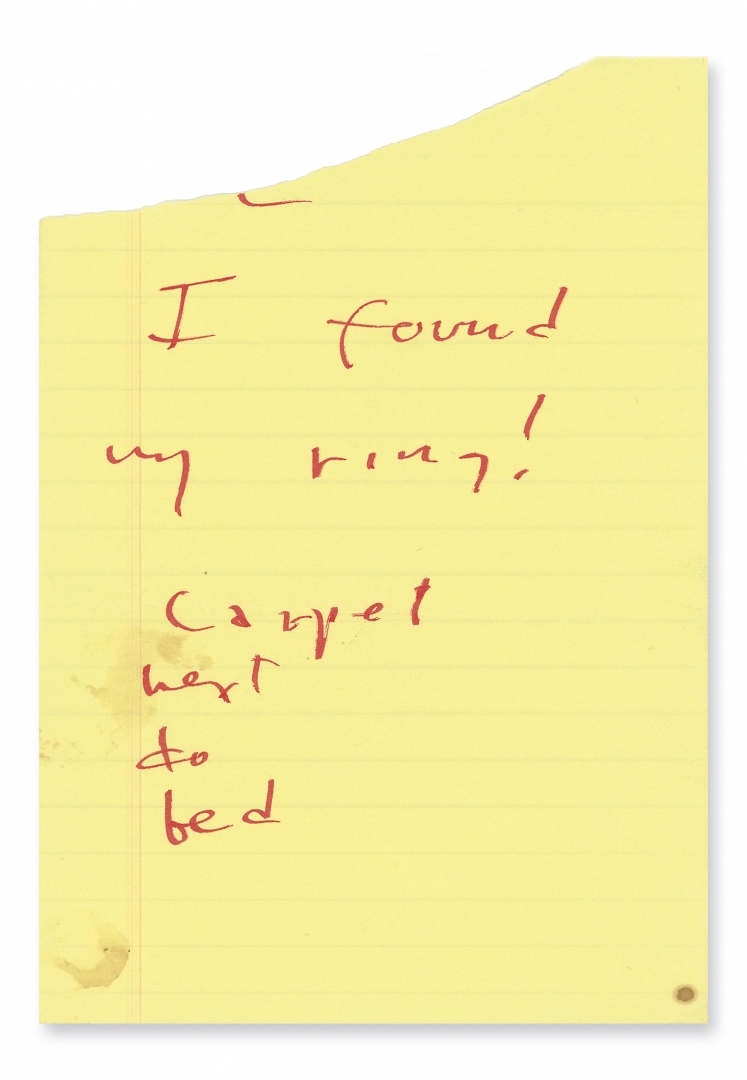 I found
my ring!
Carpet
next
to
bed